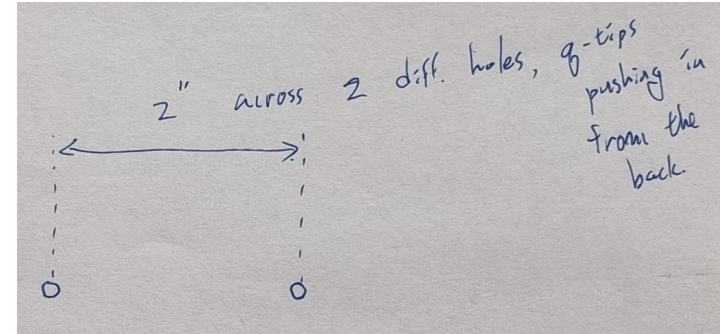 2" across 2 diff. holes, q-tips
pushing in
from the
back.